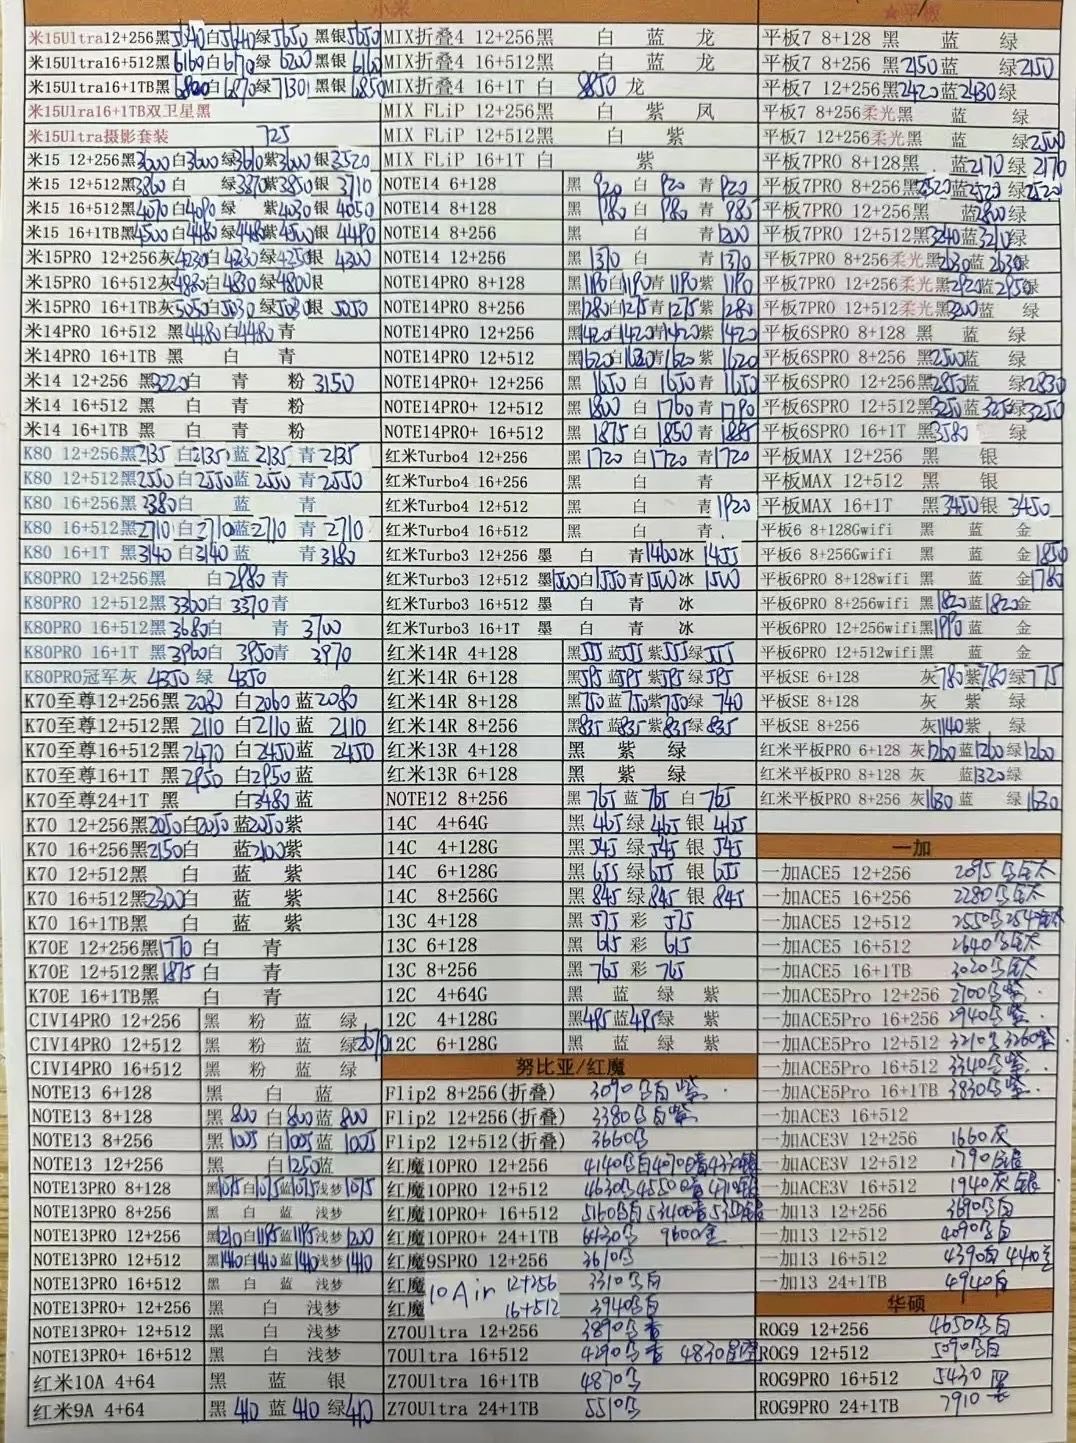 小米
米15Ultra12+256黑5640白5640绿5650 黑银5650
米15Ultra16+512黑6160白6170绿 6200 黑银6160
米15Ultra16+1TB黑 白6870绿7130 黑银6850
米15Ulra16+1TB双卫星黑
米15Ultra摄影套装 725
米15 12+256黑3600白3600绿3610紫3600银3520
米15 12+512黑3860白 绿3870紫3850银 3710
米15 16+512黑4070白4090绿 紫4030银 4050
米15 16+1TB黑4500白4480绿4480紫4500银4490
米15PRO 12+256灰4230白4230绿4250银 4300
米15PRO 16+512灰4830白4830绿4800银
米15PRO 16+1TB灰5050白5030绿5030银 5050
米14PRO 16+512 黑4480白4480青
米14PRO 16+1TB 黑 白 青
米14 12+256 黑3220白 青 粉3150
米14 16+512 黑 白 青 粉
米14 16+1TB 黑 白 青 粉
K80 12+256黑2135白2135蓝2135青2135
K80 12+512黑2550白2550蓝2550青2550
K80 16+256黑2380白 蓝 青
K80 16+512黑2710白2710蓝2710 青2710
K80 16+1T 黑3140白3140蓝 青3180
K80PRO 12+256黑 白2980青
K80PRO 12+512黑3360白 3370青
K80PRO 16+512黑3680白 青 3700
K80PRO 16+1T 黑3960白 3950青 3970
K80PRO冠军灰 4350 绿 4350
K70至尊12+256黑 2080 白2060蓝2080
K70至尊12+512黑 2110 白2110蓝 2110
K70至尊16+512黑 2470 白2450蓝 2450
K70至尊16+1T 黑2950 白2950蓝
K70至尊24+1T 黑 白3480蓝
K70 12+256黑2050白2050蓝2050紫
K70 16+256黑2150白 蓝2100紫
K70 12+512黑 白 蓝 紫
K70 16+512黑2300白 蓝 紫
K70 16+1TB黑 白 蓝 紫
K70E 12+256黑1770白 青
K70E 12+512黑1875白 青
K70E 16+1TB黑 白 青
CIVI4PRO 12+256 黑 粉 蓝 绿
CIVI4PRO 12+512 黑 粉 蓝 绿2070
CIVI4PRO 16+512 黑 粉 蓝 绿
NOTE13 6+128 黑 白 蓝
NOTE13 8+128 黑 800 白800蓝 800
NOTE13 8+256 黑1005白1005蓝 1005
NOTE13 12+256 黑 白1250蓝
NOTE13PRO 8+128 黑1075白1075蓝1075浅梦1075
NOTE13PRO 8+256 黑 白 蓝 浅梦
NOTE13PRO 12+256 黑1210白1195蓝1195浅梦1200
NOTE13PRO 12+512 黑1410白1410蓝1410浅梦1410
NOTE13PRO 16+512 黑 白 蓝 浅梦
NOTE13PRO+ 12+256 黑 白 浅梦
NOTE13PRO+ 12+512 黑 白 浅梦
NOTE13PRO+ 16+512 黑 白 浅梦
红米10A 4+64 黑 蓝 银
红米9A 4+64 黑 410 蓝 410 绿410
MIX折叠4 12+256黑 白 蓝 龙
MIX折叠4 16+512黑 白 蓝 龙
MIX折叠4 16+1T 白 9850 龙
MIX FLiP 12+256黑 白 紫 凤
MIX FLiP 12+512黑 白 紫
MIX FLiP 16+1T 白 紫
NOTE14 6+128 黑 920 白 920 青920
NOTE14 8+128 黑 980 白 980 青985
NOTE14 8+256 黑 白 青1200
NOTE14 12+256 黑1370 白 青1370
NOTE14PRO 8+128 黑1190白1190青1190紫 1190
NOTE14PRO 8+256 黑1280白1275青1275紫 1280
NOTE14PRO 12+256 黑1420白1420青1420紫1420
NOTE14PRO 12+512 黑1620白1620青1620 紫 1620
NOTE14PRO+ 12+256 黑 1650 白 1650 青1650
NOTE14PRO+ 12+512 黑 1800 白 1760 青1790
NOTE14PRO+ 16+512 黑 1875 白 1850 青1885
红米Turbo4 12+256 黑1720 白1720 青1720
红米Turbo4 16+256 黑 白 青
红米Turbo4 12+512 黑 白 青1920
红米Turbo4 16+512 黑 白 青
红米Turbo3 12+256 墨 白 青1400冰 1455
红米Turbo3 12+512 墨1500白1550青1500冰 1500
红米Turbo3 16+512 墨 白 青 冰
红米Turbo3 16+1T 墨 白 青 冰
红米14R 4+128 黑555蓝555紫555绿555
红米14R 6+128 黑595蓝595紫595绿595
红米14R 8+128 黑750蓝750紫750绿 740
红米14R 8+256 黑835蓝835紫835绿835
红米13R 4+128 黑 紫 绿
红米13R 6+128 黑 紫 绿
NOTE12 8+256 黑 765 蓝 765 白765
14C 4+64G 黑 465 绿 465 银 465
14C 4+128G 黑 545 绿 545 银 545
14C 6+128G 黑 655 绿 655 银 655
14C 8+256G 黑 845 绿 845 银 845
13C 4+128 黑 575 彩 575
13C 6+128 黑 615 彩 615
13C 8+256 黑 765 彩 765
12C 4+64G 黑 蓝 绿 紫
12C 4+128G 黑495蓝495绿 紫
12C 6+128G 黑 蓝 绿 紫
努比亚/红魔
Flip2 8+256(折叠) 3090乌白紫
Flip2 12+256(折叠) 3380乌白紫
Flip2 12+512(折叠) 3660乌
红魔10PRO 12+256
红魔10PRO 12+512
红魔10PRO+ 16+512
红魔10PRO+ 24+1TB 6430乌 9600金
红魔9SPRO 12+256 3610乌
红魔10Air 12+256 3310乌白
红魔 16+512 3940乌白
Z70Ultra 12+256
70Ultra 16+512
Z70Ultra 16+1TB 4870乌
Z70Ultra 24+1TB 5510乌
★平板
平板7 8+128 黑 蓝 绿
平板7 8+256 黑2150蓝 绿2150
平板7 12+256黑2420蓝2430绿
平板7 8+256柔光黑 蓝 绿
平板7 12+256柔光黑 蓝 绿2500
平板7PRO 8+128黑 蓝2170绿2170
平板7PRO 8+256黑2520蓝2520绿2520
平板7PRO 12+256黑 蓝2800绿
平板7PRO 12+512黑3240蓝3210绿
平板7PRO 8+256柔光黑2630蓝2630绿
平板7PRO 12+256柔光黑2920蓝2950绿
平板7PRO 12+512柔光黑3200蓝 绿
平板6SPRO 8+128 黑 蓝 绿
平板6SPRO 8+256 黑2500蓝 绿
平板6SPRO 12+256黑2850蓝 绿2830
平板6SPRO 12+512黑3250蓝3250绿3250
平板6SPRO 16+1T 黑3580 绿
平板MAX 12+256 黑 银
平板MAX 12+512 黑 银
平板MAX 16+1T 黑3450银 3450
平板6 8+128Gwifi 黑 蓝 金
平板6 8+256Gwifi 黑 蓝 金1850
平板6PRO 8+128wifi 黑 蓝 金1780
平板6PRO 8+256wifi 黑1820蓝1820金
平板6PRO 12+256wifi黑1990蓝 金
平板6PRO 12+512wifi黑 蓝 金
平板SE 6+128 灰780紫780绿775
平板SE 8+128 灰 紫 绿
平板SE 8+256 灰1140紫 绿
红米平板PRO 6+128 灰1200蓝1200绿1200
红米平板PRO 8+128 灰 蓝1320绿
红米平板PRO 8+256 灰1630 蓝 绿1630
一加
一加ACE5 12+256 2095乌钛
一加ACE5 16+256 2280乌钛
一加ACE5 12+512
一加ACE5 16+512 2640乌钛
一加ACE5 16+1TB 3020乌钛
一加ACE5Pro 12+256 2700乌紫
一加ACE5Pro 16+256 2940乌紫
一加ACE5Pro 12+512 3210乌3260紫
一加ACE5Pro 16+512 3340乌紫
一加ACE5Pro 16+1TB 3830乌紫
一加ACE3 16+512
一加ACE3V 12+256 1660灰
一加ACE3V 12+512 1790
一加ACE3V 16+512 1940灰银
一加13 12+256 3690乌白
一加13 12+512 4090乌白
一加13 16+512 4390白
一加13 24+1TB 4940白
华硕
ROG9 12+256 4650乌白
ROG9 12+512 5090乌白
ROG9PRO 16+512 5430 黑
ROG9PRO 24+1TB 7910 黑